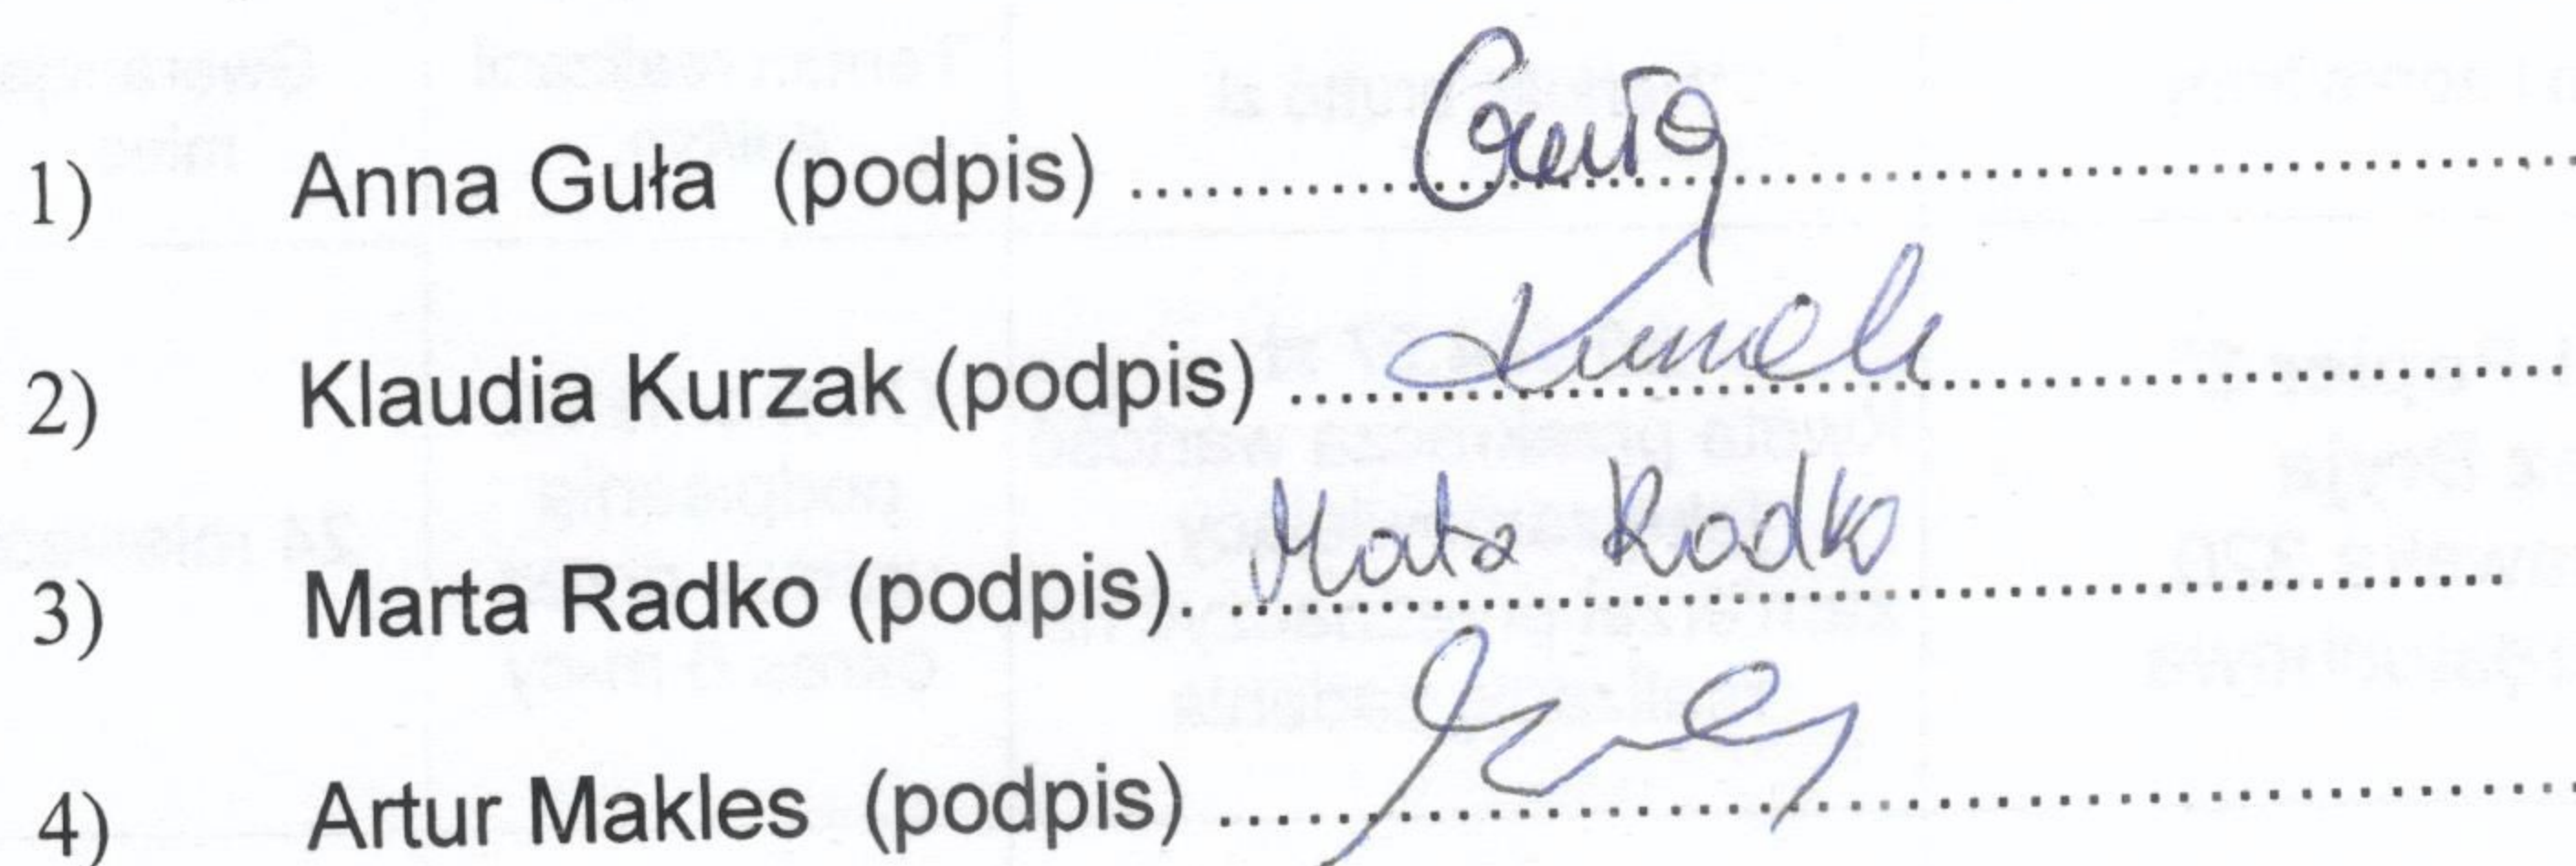 1) Anna Guła (podpis) ....................
2) Klaudia Kurzak (podpis) ....................
3) Marta Radko (podpis). .................... Marta Radko
4) Artur Makles (podpis) ....................